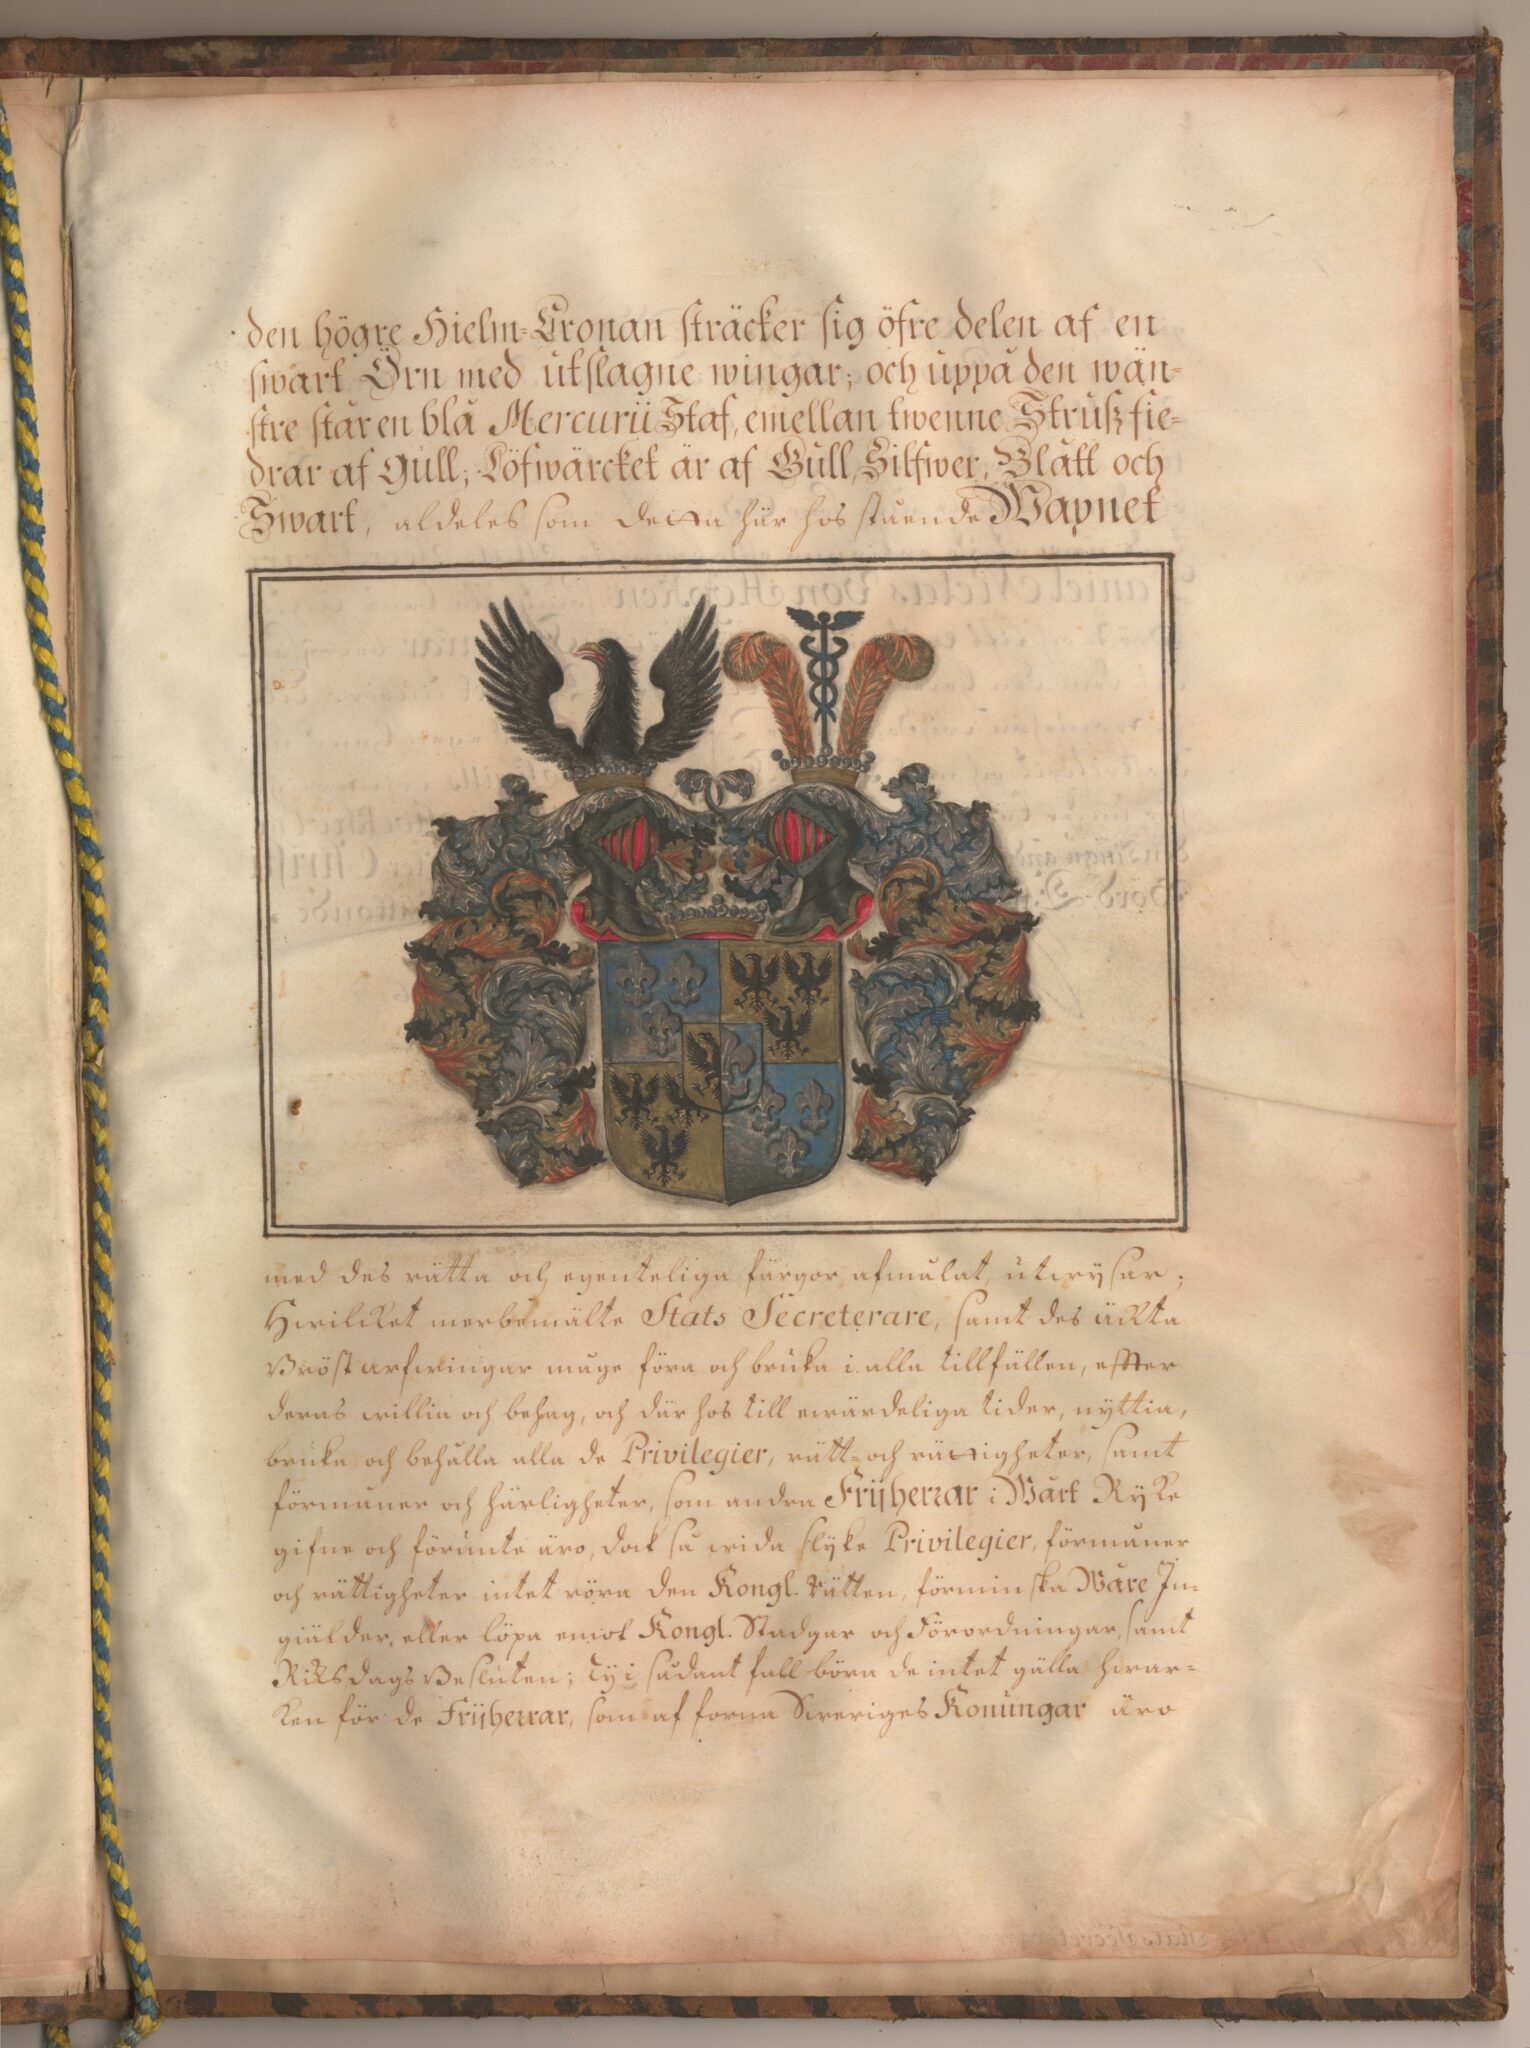 den högre Hielm-Cronan sträcker sig öfre delen af en
swart Örn med utslagne wingar; och uppå den wän-
stre står en blå Mercurii Staf, emellan twenne Struß fie-
drar af gull; Löfwärcket är af Gull, Silfwer, Blått och
Swart, aldeles som detta här hos stående Wapnet
med des rätta och egenteliga färgor afmålat, utwysar;
Hwilcket merbemälte Stats Secreterare, samt des äckta
Bröst arfwingar måge föra och bruka i alla tillfällen, effter
deras willia och behag, och där hos till ewärdeliga tider, nyttia,
bruka och behålla alla de Privilegier, rätt- och rättigheter, samt
förmåner och härligheter, som andra Friiherrar i Wårt Ryke
gifne och förunte äro, dock så wida slyke Privilegier, förmåner
och rättigheter intet röra den Kongl. rätten, förminska Wåre In-
giälder, eller löpa emot Kongl. Stadgar och Förordningar, samt
RiksDags Besluten; ty i sådant fall böra de intet gälla hwar-
ken för de Friiherrar, som af forna Sweriges Konungar äro